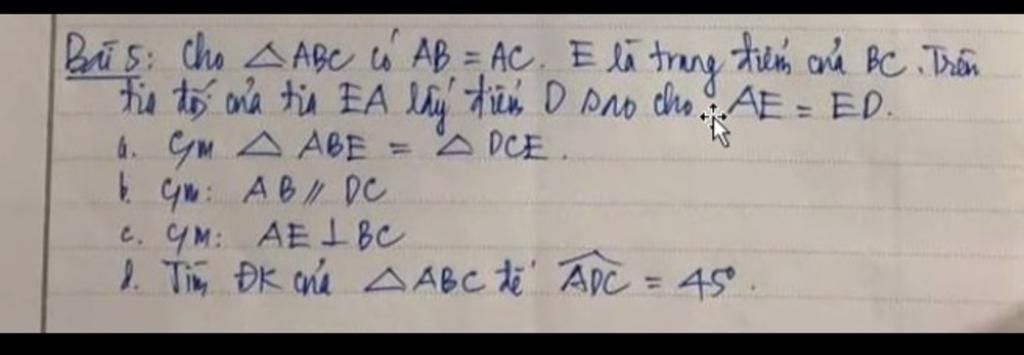 Bài 5: Cho △ABC có AB = AC. E là trung điểm của BC. Trên
tia đối của tia EA lấy điểm D sao cho AE = ED.
a. CM △ ABE = △ DCE.
b. CM: AB // DC
c. CM: AE ⊥ BC
d. Tìm ĐK của △ABC để \widehat{ADC} = 45°.